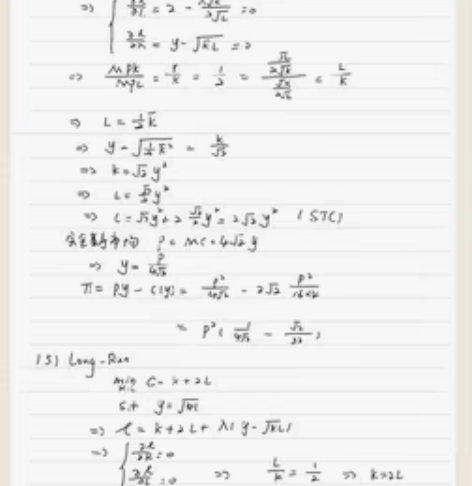 ⇒ { ∂ℓ/∂L = 2 - λ√K/2√L = 0
∂ℓ/∂λ = y - √KL = 0
⇒ MPK/MPL = r/k = 1/2 = (√L/2√K)/(√K/2√L) = L/K
⇒ L = 1/2 K
⇒ y = √(1/2 K²) = K/√2
⇒ K = √2 y²
⇒ L = √2/2 y²
⇒ C = √2 y² + 2 √2/2 y² = 2√2 y² (STC)
P = MC = 4√2 y
⇒ y = P/4√2
π = Py - C(y) = P²/4√2 - 2√2 P²/16×2
= P² ( 1/4√2 - √2/32 )
(5) Long-Run
min K,L C = K + 2L
s.t y = √KL
⇒ ℓ = K + 2L + λ( y - √KL )
⇒ { ∂ℓ/∂K = 0
∂ℓ/∂L = 0 ⇒ L/K = 1/2 ⇒ K = 2L